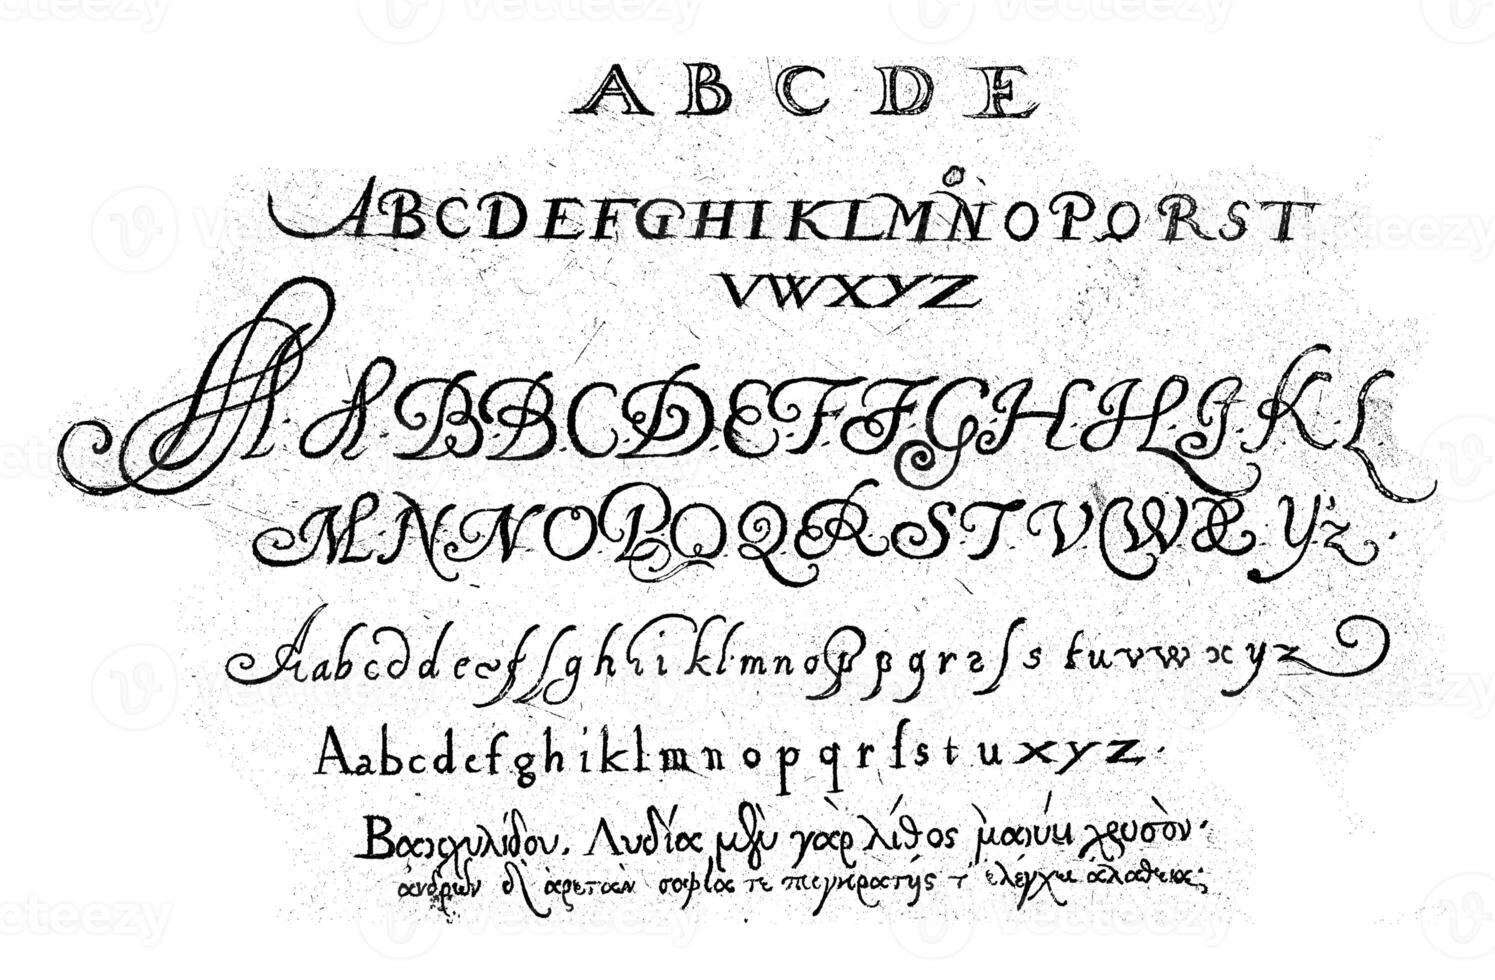 A B C D E
ABCDEFGHIKLMNOPQRST
VWXYZ
AABBCDEFFGHHIKL
MNNOPQQRSTVWXYZ
Aabcddeefſſghiiklmnoppqrsſstuvwxyz
Aabcdefghiklmnopqrſstuxyz.
Βακχυλίδου. Λυδία μὲν γὰρ λίθος μανύει χρυσὸν·
ἀνδρῶν δ' ἀρετὰν σοφία τε παγκρατής τ' ἐλέγχει ἀλάθεια;